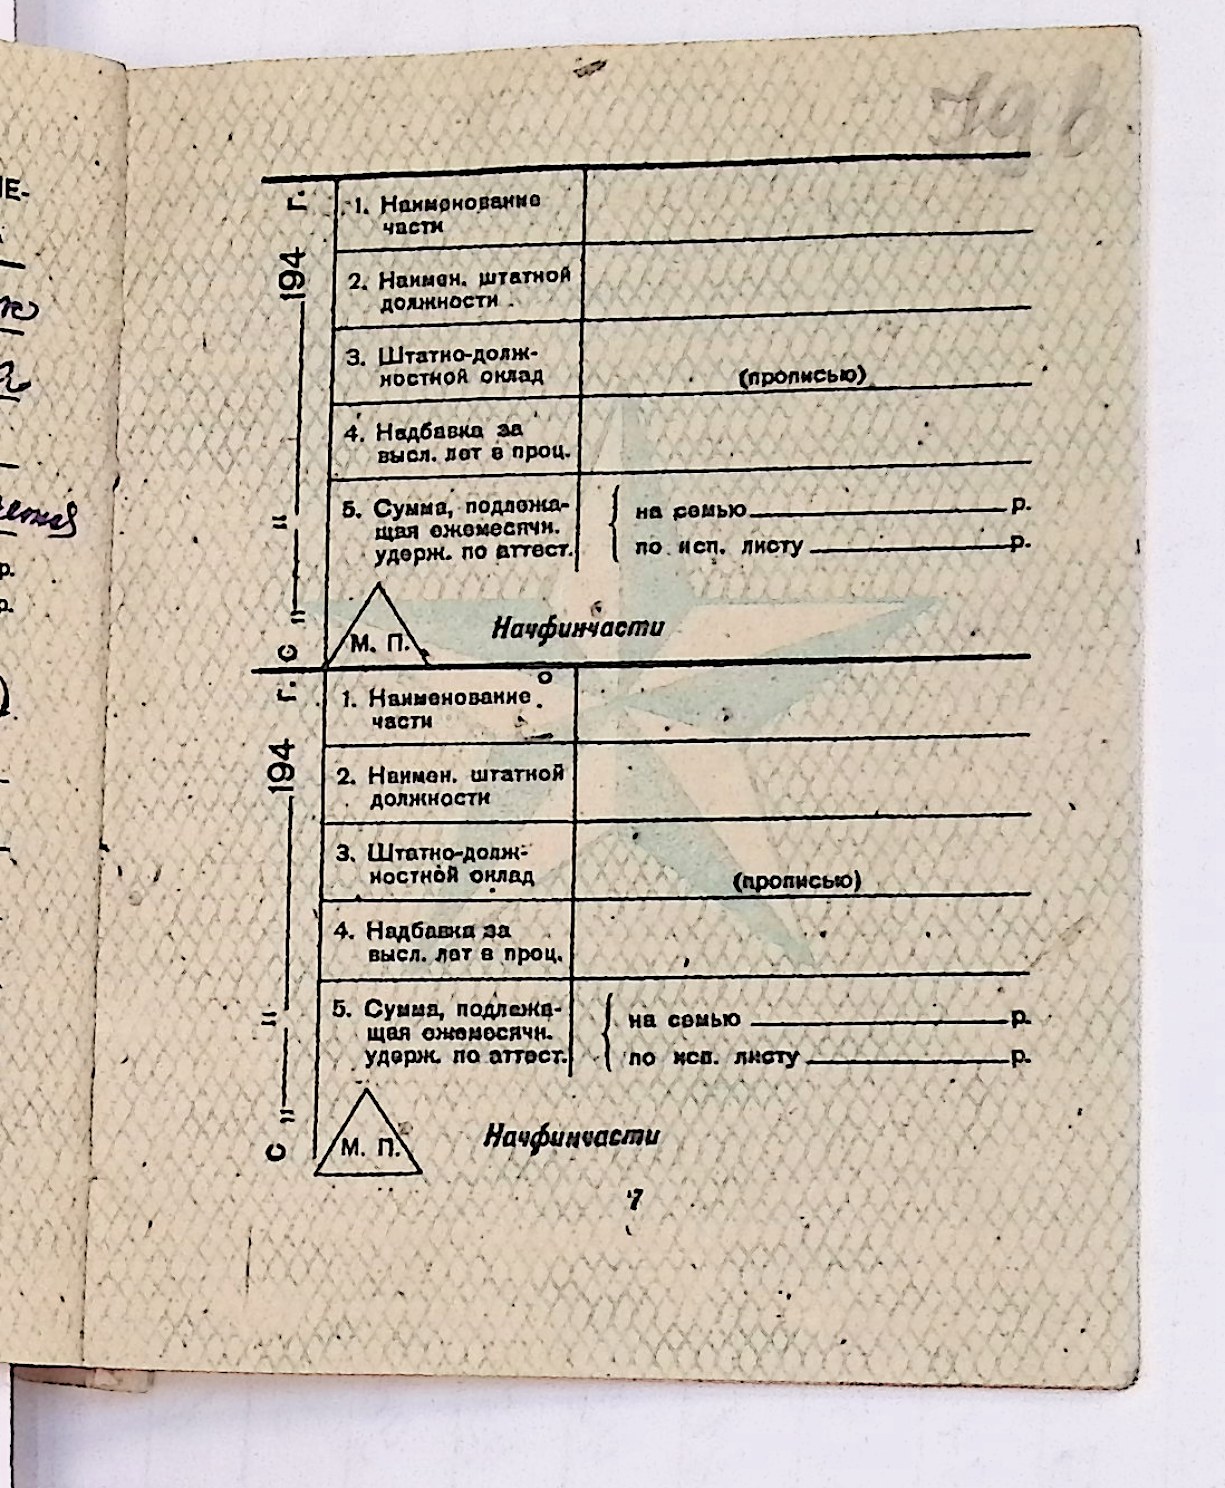 С "__" ________ 194 г.
1. Наименование
части
2. Наимен. штатной
должности
3. Штатно-долж-
ностной оклад
(прописью)
4. Надбавка за
высл. лет в проц.
5. Сумма, подлежа-
щая ежемесячн.
удерж. по аттест.
на семью ________ р.
по исп. листу ________ р.
М. П.
Начфинчасти
С "__" ________ 194 г.
1. Наименование
части
2. Наимен. штатной
должности
3. Штатно-долж-
ностной оклад
(прописью)
4. Надбавка за
высл. лет в проц.
5. Сумма, подлежа-
щая ежемесячн.
удерж. по аттест.
на семью ________ р.
по исп. листу ________ р.
М. П.
Начфинчасти
7